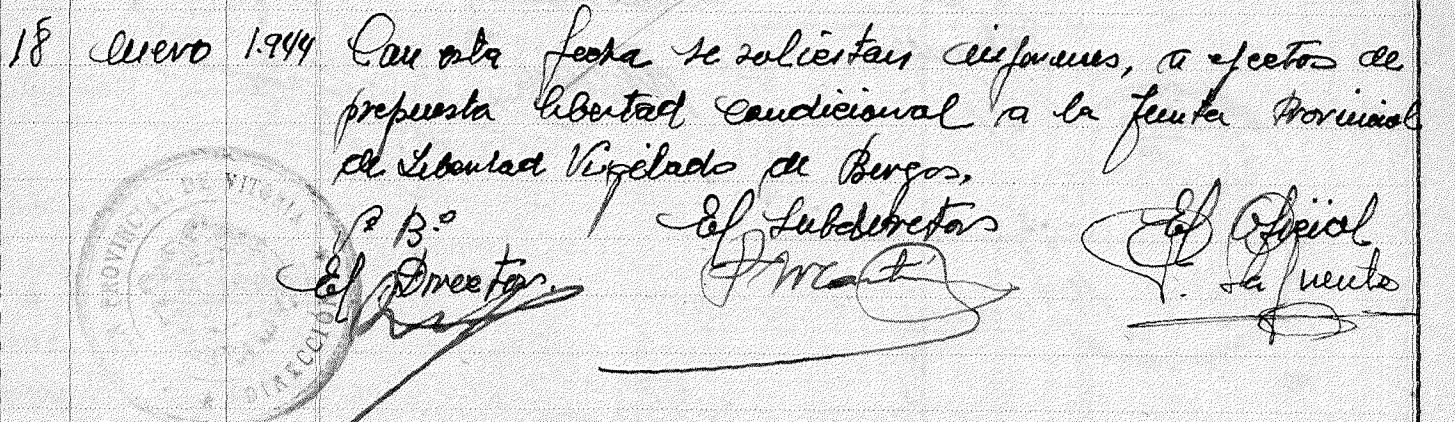 18 enero 1.944 Con esta fecha se solicitan informes, a efectos de
propuesta libertad condicional a la Junta Provincial
de Libertad Vigilada de Burgos.
Vº Bº El Subdirector El Oficial
El Director. de la Fuente
PROVINCIAL DE VITORIA
* DIRECCIÓN *